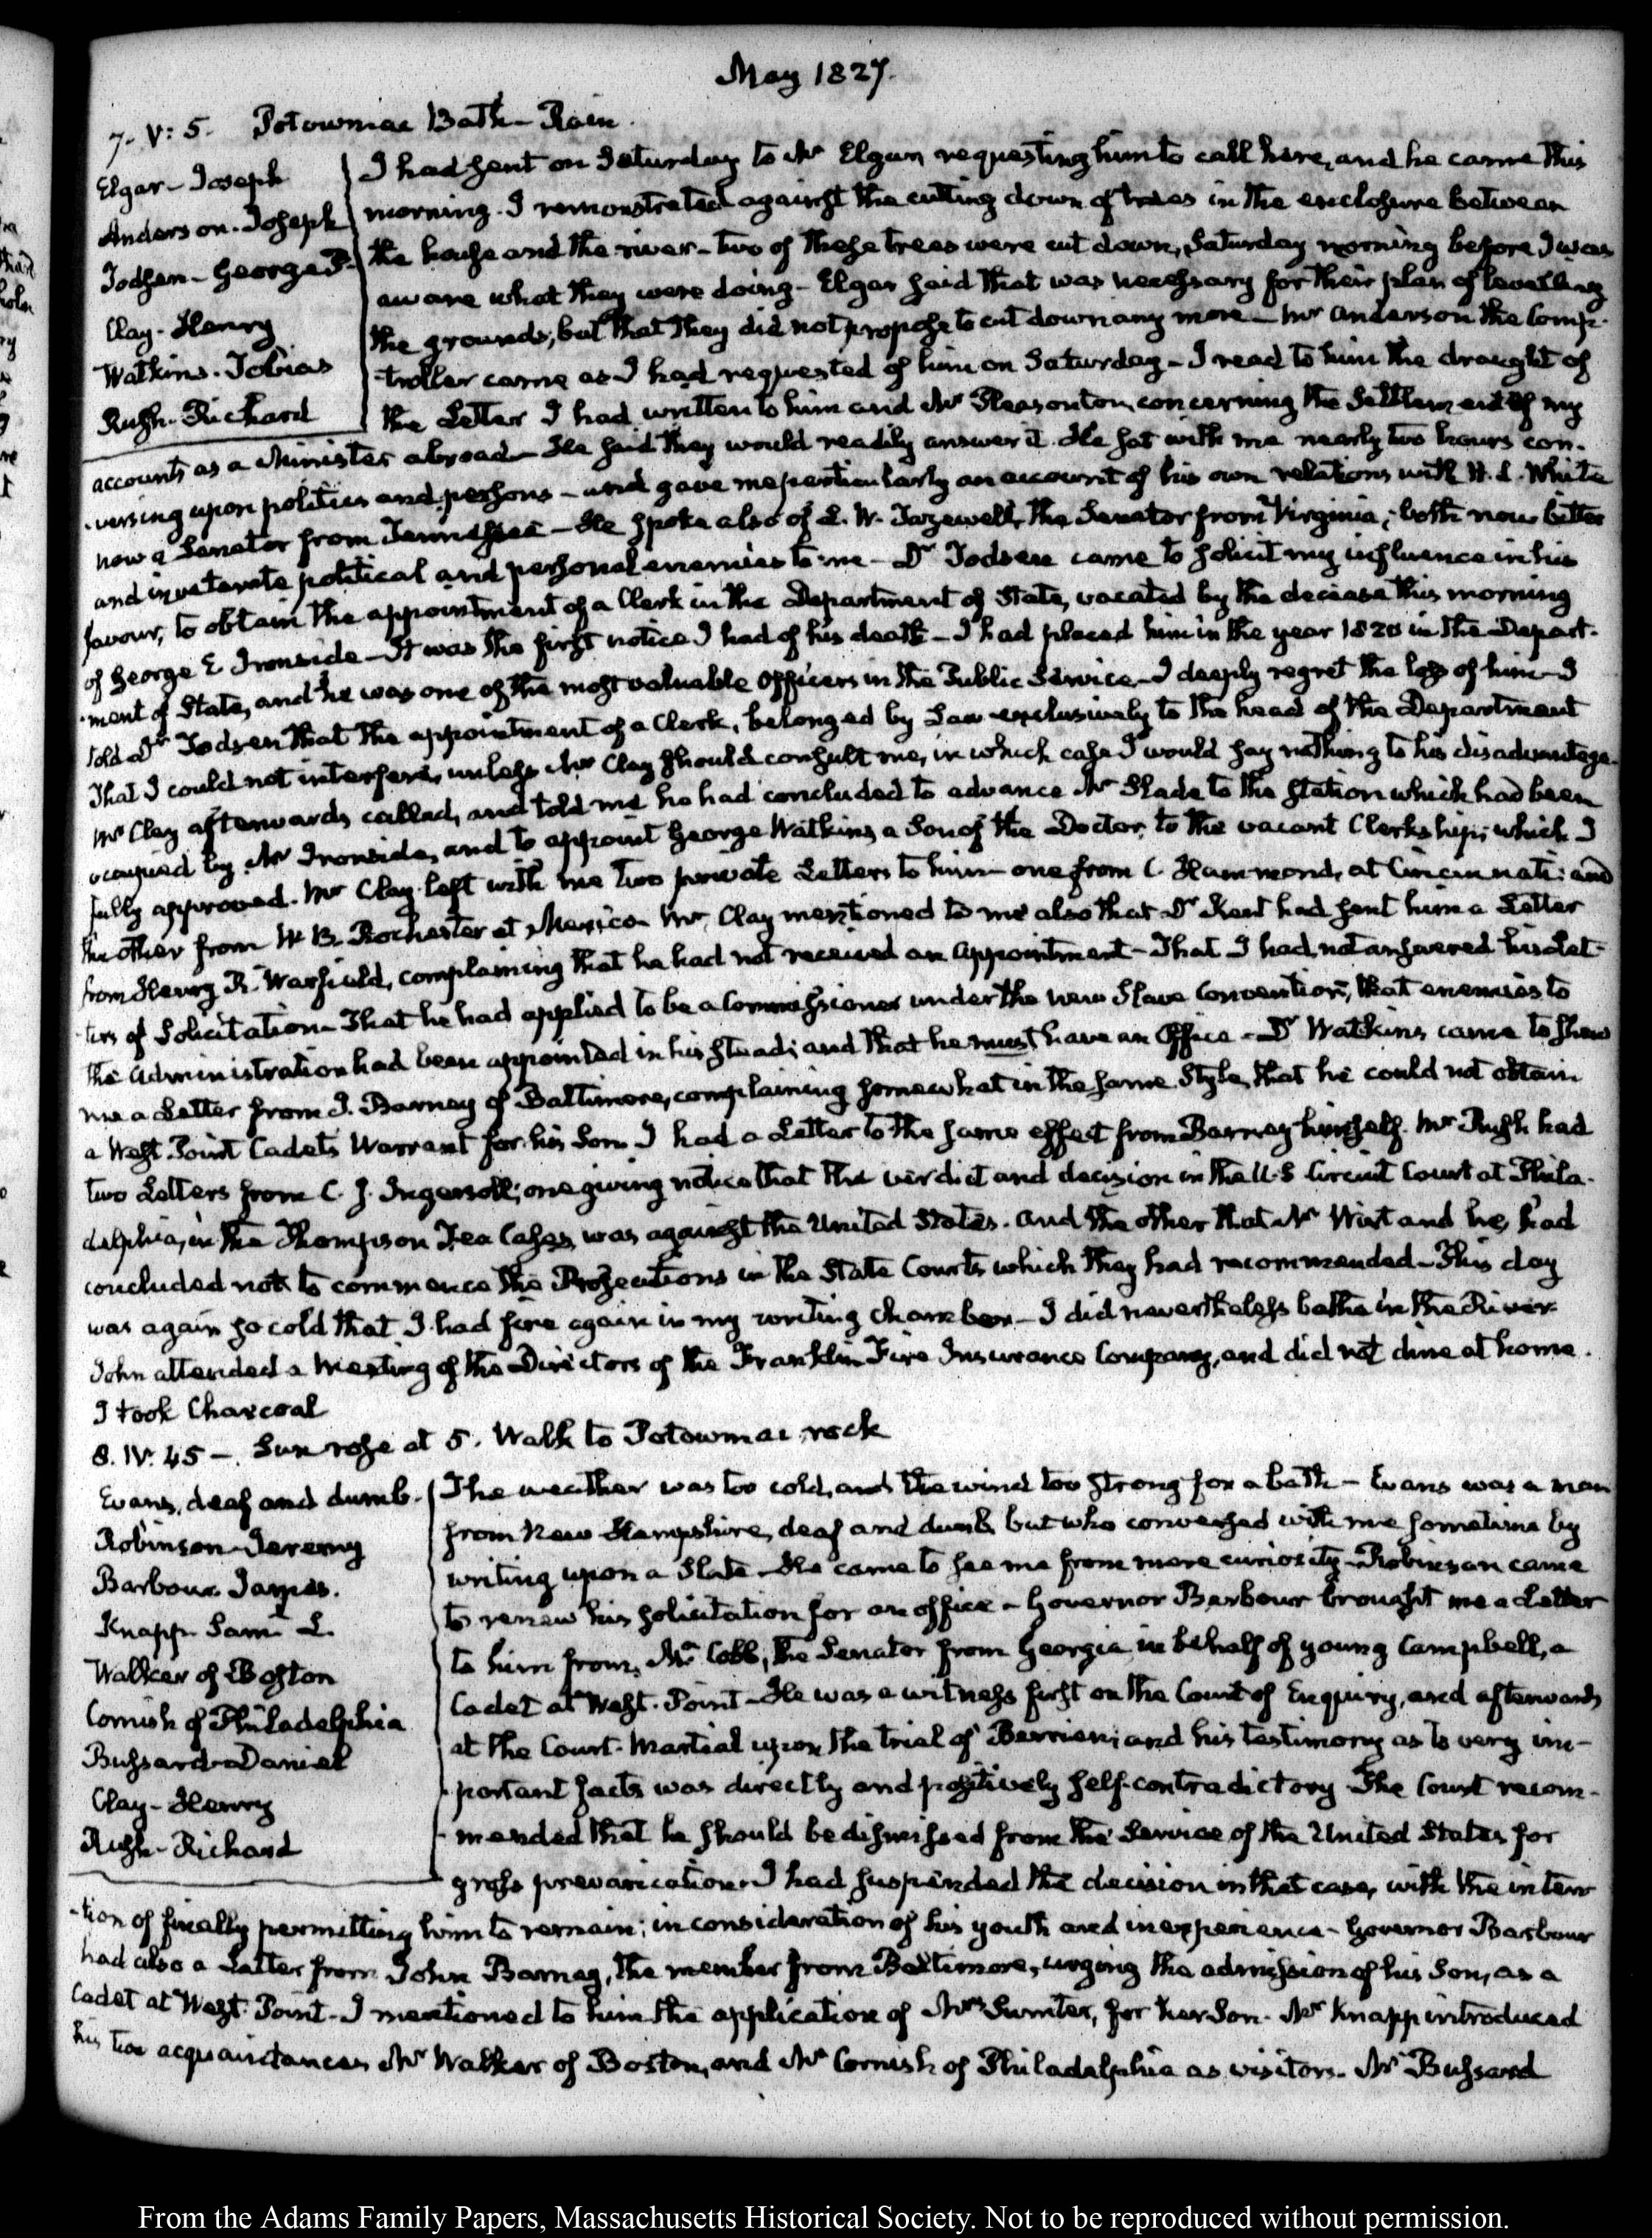 May 1827.
7. V: 5. Potowmac Bath – Rain.
Elgar – Joseph
Anderson. Joseph
Todsen – George P.
Clay – Henry
Watkins. Tobias
Rush. Richard
I had sent on Saturday to Mr Elgar requesting him to call here, and he came this
morning. I remonstrated against the cutting down of trees in the enclosure between
the house and the river – two of these trees were cut down, Saturday morning before I was
aware what they were doing – Elgar said that was necessary for their plan of levelling
the grounds; but that they did not propose to cut down any more – Mr Anderson the Comp-
-troller came as I had requested of him on Saturday – I read to him the draught of
the Letter I had written to him and Mr Pleasonton, concerning the Settlement of my
accounts as a Minister abroad – He said they would readily answer it. He sat with me nearly two hours con-
-versing upon politics and persons – and gave me particularly an account of his own relations with H. L. White
now a Senator from Tennessee – He spoke also of L. W. Tazewell, the Senator from Virginia; both now bitter
and inveterate political and personal enemies to me – Dr Todsen came to solicit my influence in his
favour, to obtain the appointment of a Clerk in the Department of State, vacated by the decease this morning
of George E Ironside – It was the first notice I had of his death – I had placed him in the year 1820 in the Depart-
-ment of State, and he was one of the most valuable Officers in the Public Service – I deeply regret the loss of him – I
told Dr Todsen that the appointment of a Clerk, belonged by Law exclusively to the head of the Department
That I could not interfere, unless Mr Clay should consult me, in which case I would say nothing to his disadvantage.
Mr Clay afterwards called, and told me he had concluded to advance Mr Slade to the station which had been
occupied by Mr Ironside, and to appoint George Watkins, a Son of the Doctor, to the vacant Clerkship; which I
fully approved. Mr Clay left with me two private Letters to him – one from C. Hammond, at Cincinnati: and
the other from W. B. Rochester at Mexico – Mr Clay mentioned to me also that Dr Kent had sent him a Letter
from Henry R. Warfield, complaining that he had not received an Appointment – That I had not answered his Let-
-ters of Solicitation – That he had applied to be a Commissioner under the new Slave Convention; that enemies to
the Administration had been appointed in his stead; and that he must have an Office – Dr Watkins came to shew
me a Letter from J. Barney of Baltimore, complaining somewhat in the same Style, that he could not obtain
a West-Point Cadet's Warrant for his Son. I had a Letter to the same effect from Barney himself. Mr Rush had
two Letters from C. J. Ingersoll; one giving notice that the verdict and decision in the U.S Circuit Court at Phila-
delphia, in the Thompson Tea Cases, was against the United States. and the other that Mr Wirt and he, had
concluded not to commence the Prosecutions in the State Courts which they had recommended – This day
was again so cold that I had fire again in my writing chamber – I did nevertheless bathe in the River
John attended a Meeting of the Directors of the Franklin Fire Insurance Company, and did not dine at home.
I took Charcoal
8. IV: 45 –. Sun rose at 5. Walk to Potowmac rock
Evans, deaf and dumb.
Robinson – Jeremy
Barbour James.
Knapp Saml L.
Walker of Boston
Cornish of Philadelphia
Bussard – Daniel
Clay – Henry
Rush – Richard
The weather was too cold, and the wind too strong for a bath – Evans was a man
from New Hampshire, deaf and dumb, but who conversed with me sometime by
writing upon a Slate – He came to see me from mere curiosity – Robinson came
to renew his solicitation for an office – Governor Barbour brought me a Letter
to him from Mr Cobb, the Senator from Georgia in behalf of young Campbell, a
Cadet at West-Point – He was a witness first on the Court of Enquiry, and afterwards
at the Court-Martial upon the trial of Berrien; and his testimony as to very im-
-portant facts was directly and positively self-contradictory – The Court recom-
-mended that he should be dismissed from the Service of the United States for
gross prevarication. I had suspended the decision in that case, with the inten-
-tion of finally permitting him to remain; in consideration of his youth and inexperience – Governor Barbour
had also a Letter from John Barney, the member from Baltimore, urging the admission of his Son, as a
Cadet at West-Point – I mentioned to him the application of Mrs Sumter, for her Son. Mr Knapp introduced
his two acquaintances Mr Walker of Boston, and Mr Cornish of Philadelphia as visitors. Mr Bussard
From the Adams Family Papers, Massachusetts Historical Society. Not to be reproduced without permission.